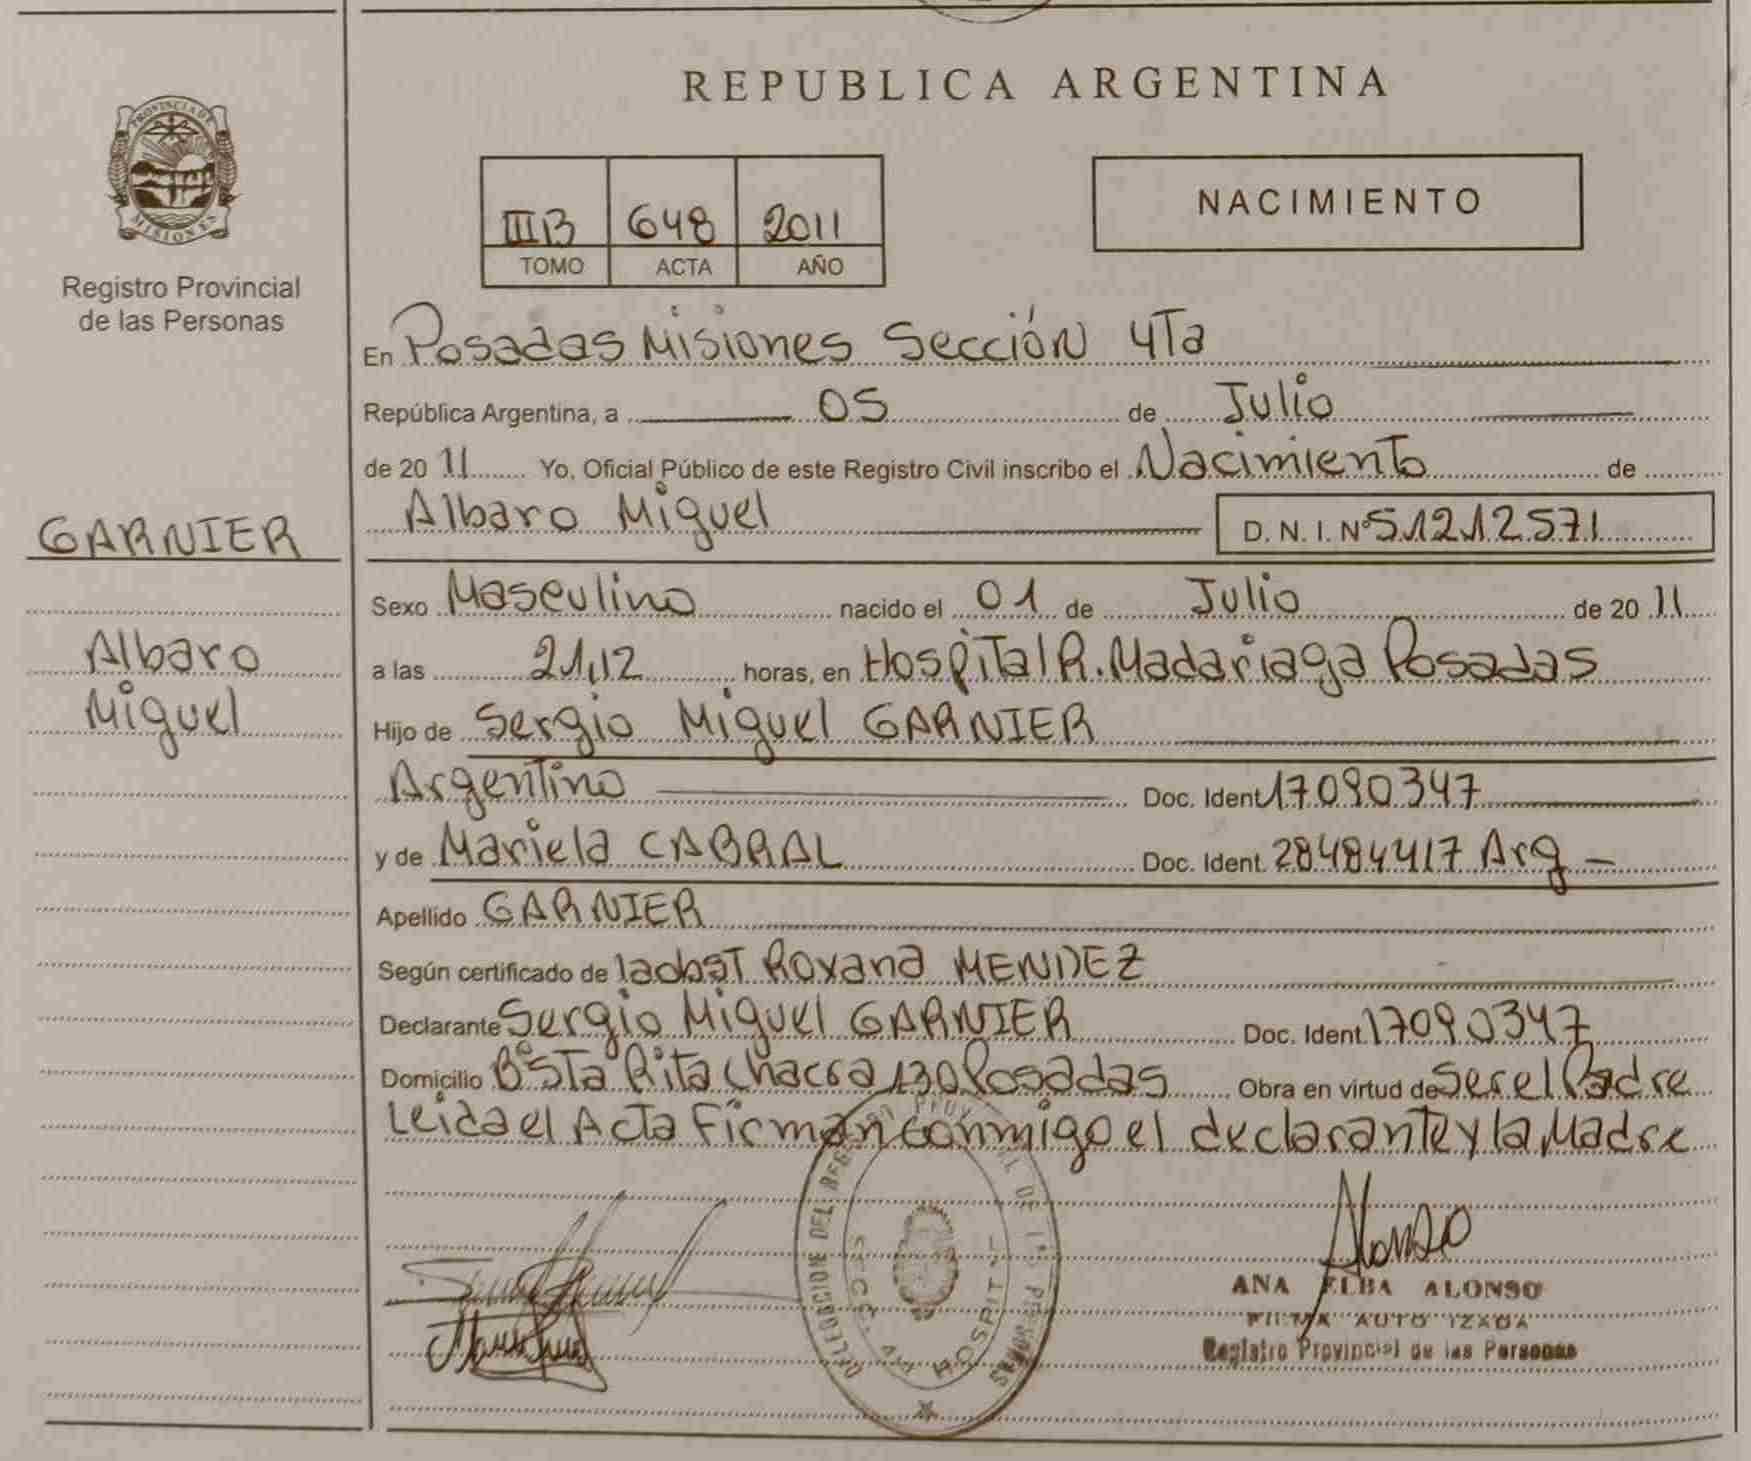 PROVINCIA DE
MISIONES
Registro Provincial
de las Personas
GARNIER
Albaro
Miguel
REPUBLICA ARGENTINA
IIIB 648 2011
TOMO ACTA AÑO
NACIMIENTO
En Posadas Misiones Sección 4Ta
República Argentina, a 05 de Julio
de 20 11 Yo, Oficial Público de este Registro Civil inscribo el Nacimiento de
Albaro Miguel D. N. I. Nº 51212571
Sexo Masculino nacido el 01 de Julio de 20 11
a las 21,12 horas, en Hospital R. Madariaga Posadas
Hijo de Sergio Miguel GARNIER
Argentino Doc. Ident. 17090347
y de Mariela CABRAL Doc. Ident. 28484417 Arg
Apellido GARNIER
Según certificado de laobst Roxana MENDEZ
Declarante Sergio Miguel GARNIER Doc. Ident. 17090347
Domicilio Bº STa Rita Chacra 130 Posadas Obra en virtud de Ser el Padre
Leida el Acta Firman conmigo el declarante y la Madre
DELEGACION DEL REGISTRO PROVINCIAL DE LAS PERSONAS
SECC. 4ta HOSPIT
Alonso
ANA ELBA ALONSO
FIRMA AUTORIZADA
Registro Provincial de las Personas